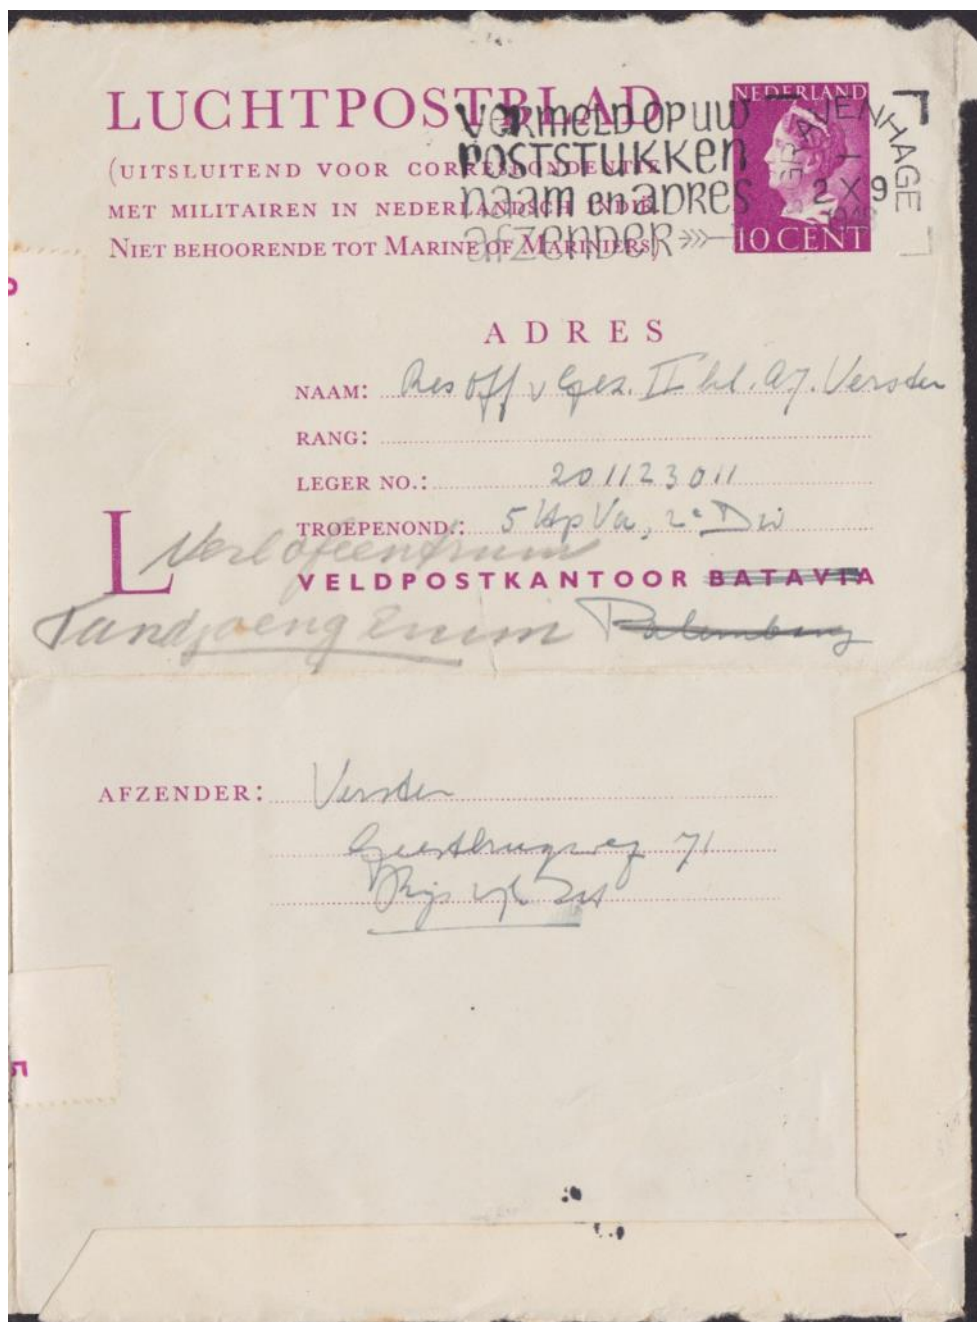 LUCHTPOSTBLAD
(UITSLUITEND VOOR CORRESPONDENTIE
MET MILITAIREN IN NEDERLANDSCH INDIË.
NIET BEHOORENDE TOT MARINE OF MARINIERS)
VERMELD OP UW
POSTSTUKKEN
naam en adres
afzender
NEDERLAND
10 CENT
'S GRAVENHAGE
1
2 X 9
ADRES
NAAM: Res Off v Gez. II kl. A.J. Verster
RANG:
LEGER NO.: 201123011
TROEPENOND.: 5 Hp Va, 2e Div
L Verlofcentrum
VELDPOSTKANTOOR BATAVIA
Tandjoeng Enim Palembang
AFZENDER: Verster
Geestbrugweg 71
Rijswijk ZH
5